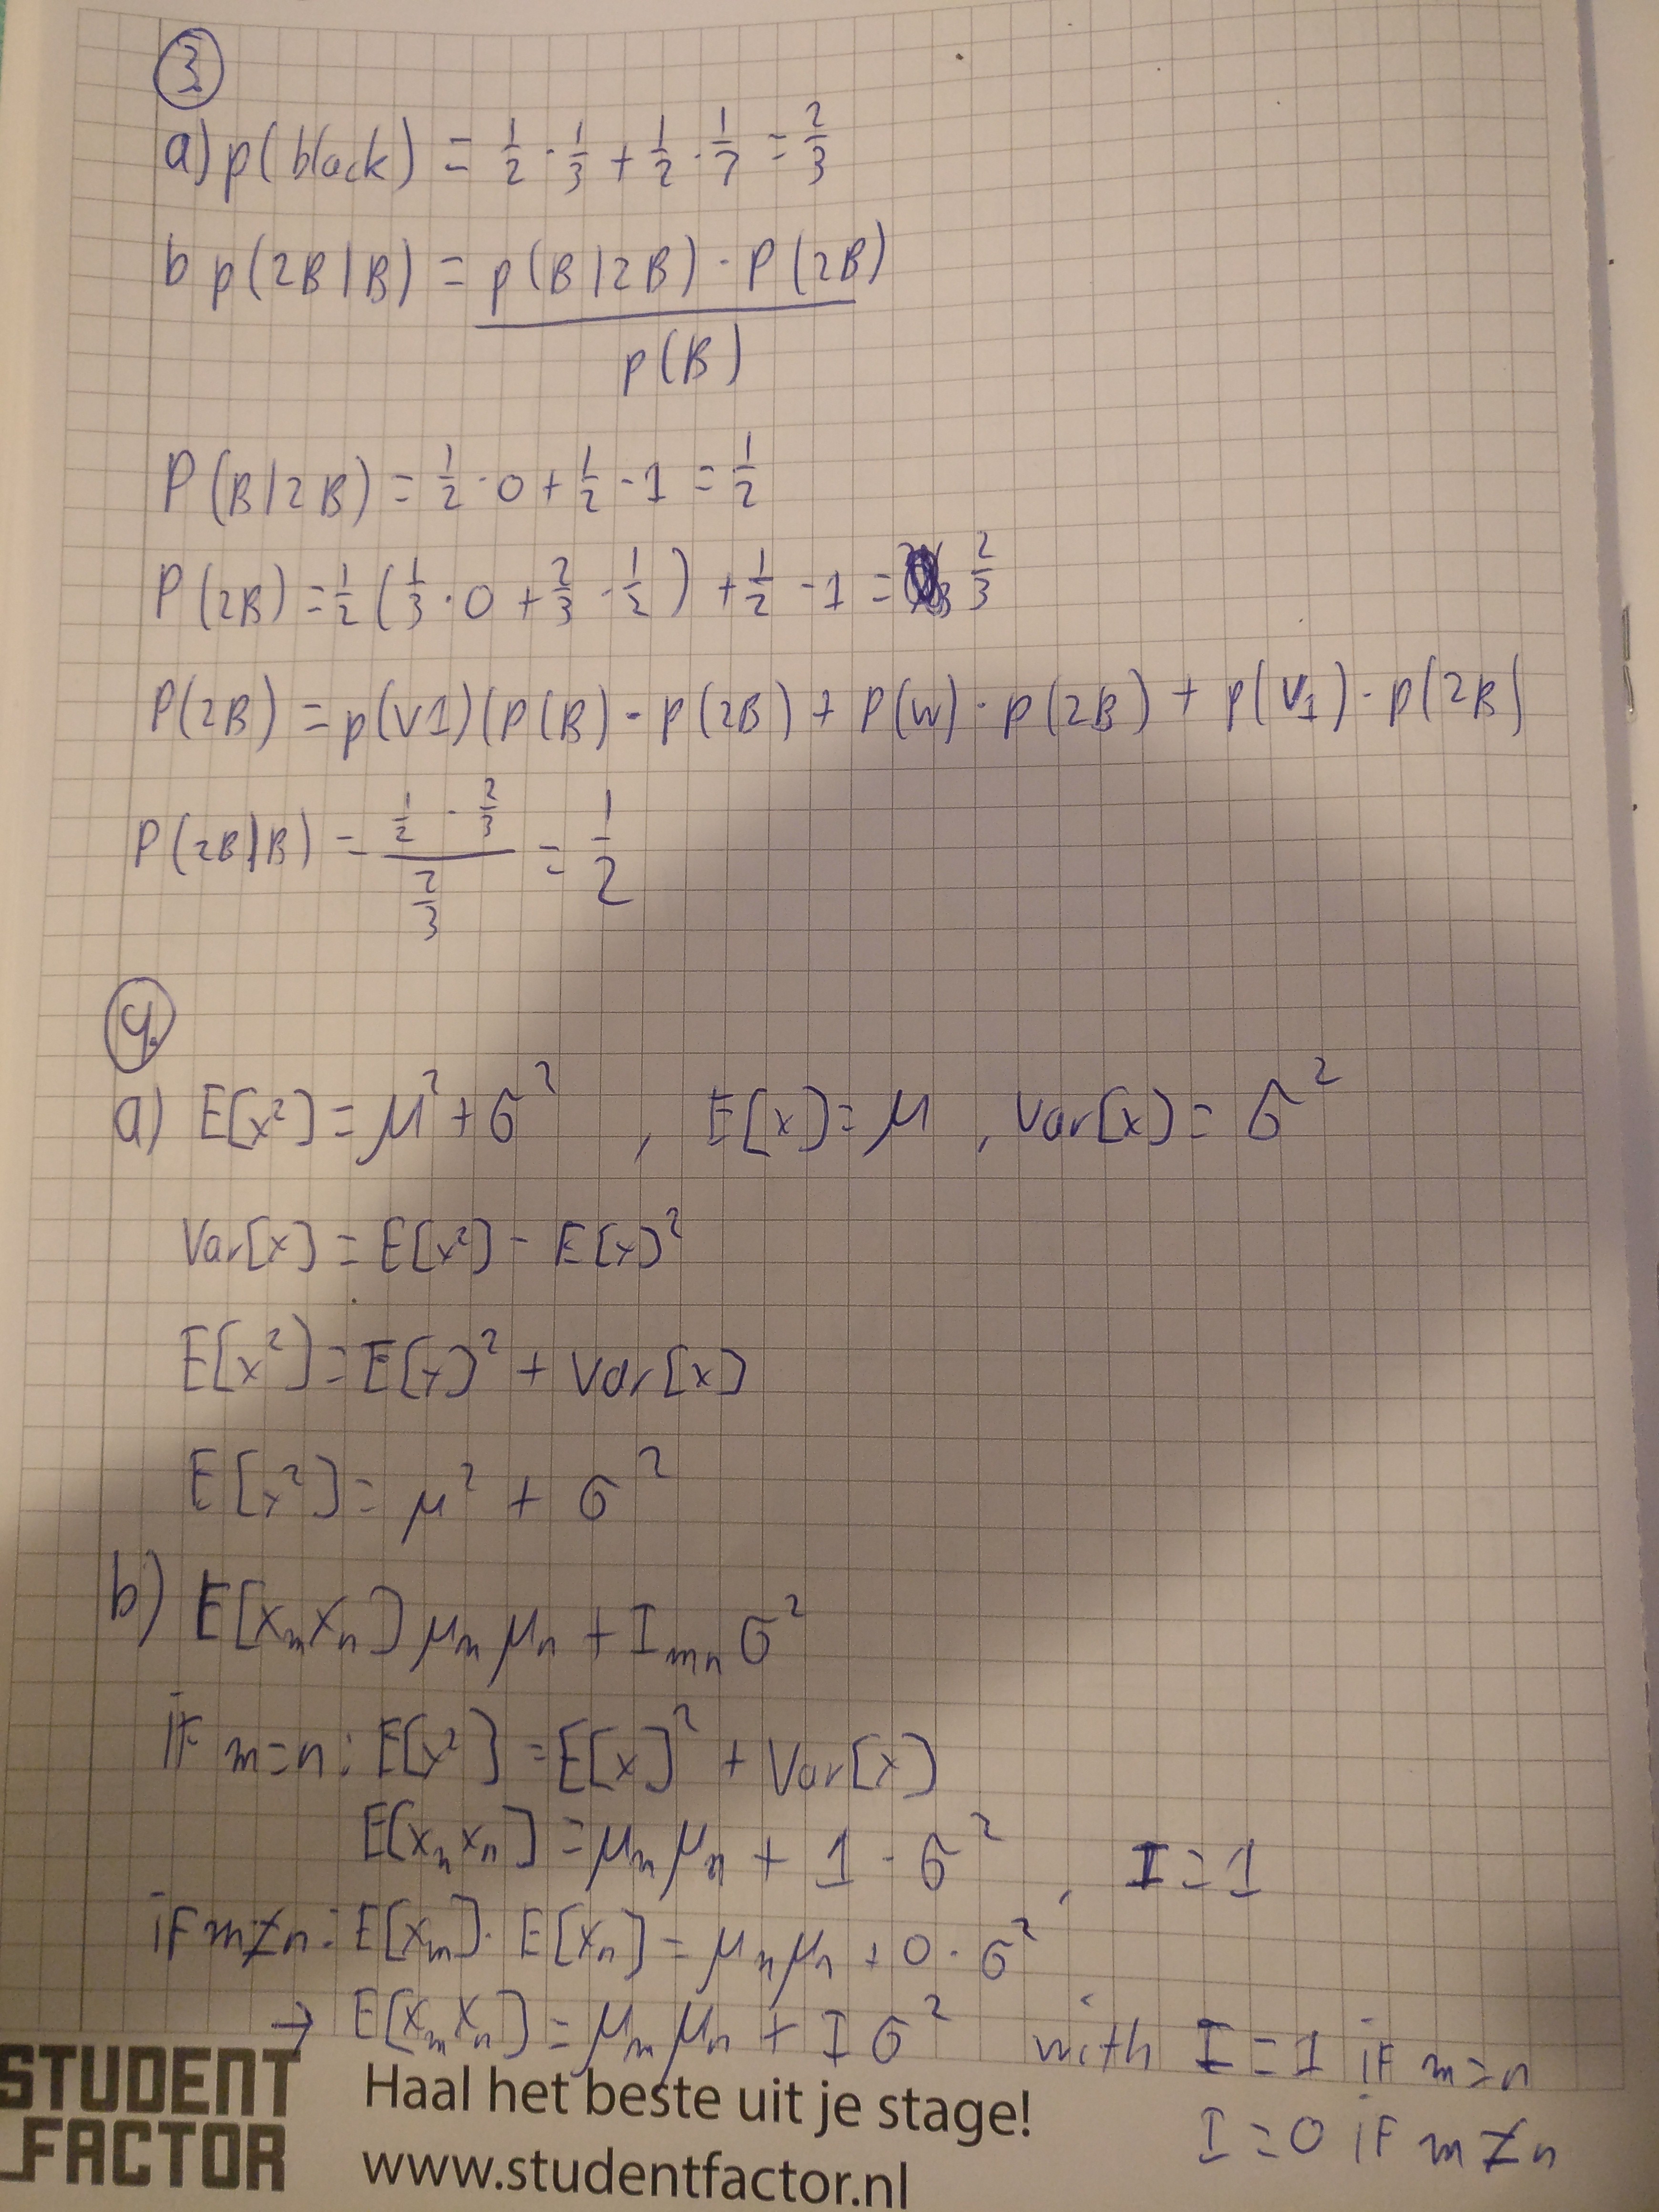 3.
a) p(black) = 1/2 · 1/3 + 1/2 · 1/7 = 2/3
b p(2B|B) = p(B|2B) · P(2B) / p(B)
P(B|2B) = 1/2 · 0 + 1/2 - 1 = 1/2
P(2B) = 1/2 (1/3 · 0 + 2/3 · 1/2) + 1/2 - 1 = 2/3
P(2B) = p(V1)(P(B) - p(2B) + P(W) · p(2B) + p(V1) · p(2B)
P(2B|B) = (1/2 - 2/3) / (2/3) = 1/2
4.
a) E[x²] = μ² + σ² , E[x] = μ , Var[x] = σ²
Var[x] = E[x²] - E[x]²
E[x²] = E[x]² + Var[x]
E[x²] = μ² + σ²
b) E[xₘxₙ] μₘ μₙ + Iₘₙ σ²
if m=n: E[x²] = E[x]² + Var[x]
E[xₙxₙ] = μₘ μₙ + 1 · σ² , I = 1
if m≠n: E[xₘ] · E[xₙ] = μₙ μₙ + 0 · σ²
→ E[xₘxₙ] = μₘ μₙ + I σ² with I = 1 if m=n
I = 0 if m≠n
STUDENT
_FACTOR
Haal het beste uit je stage!
www.studentfactor.nl